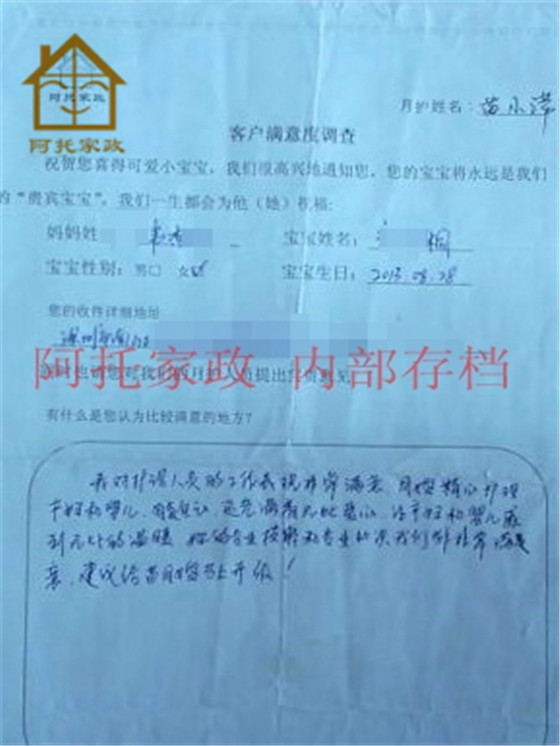 阿托家政
阿托家政
月护姓名：苗小萍
客户满意度调查
祝贺您喜得可爱小宝宝，我们很高兴地通知您，您的宝宝将永远是我们
的“贵宾宝宝”，我们一生都会为他（她）祈福：
妈妈姓
宝宝姓名：
宝宝性别：男□ 女☑
宝宝生日：2013.08.28
您的收件详细地址
深圳市南山
阿托家政 内部存档
有什么是您认为比较满意的地方？
我对护理人员的工作表现非常满意，月嫂精心护理
产妇和婴儿，
到无比的温暖，她的专业技术和专业知识我们都非常满
意，建议给苗月嫂马上升级！